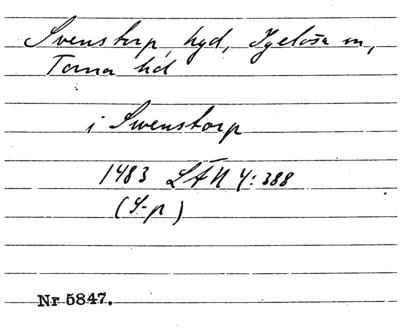 Svenstorp, hyd, Igelösa sn,
Torna hd
i Swenstorp
1483 LÄU 4:388
(S-p)
Nr 5847.